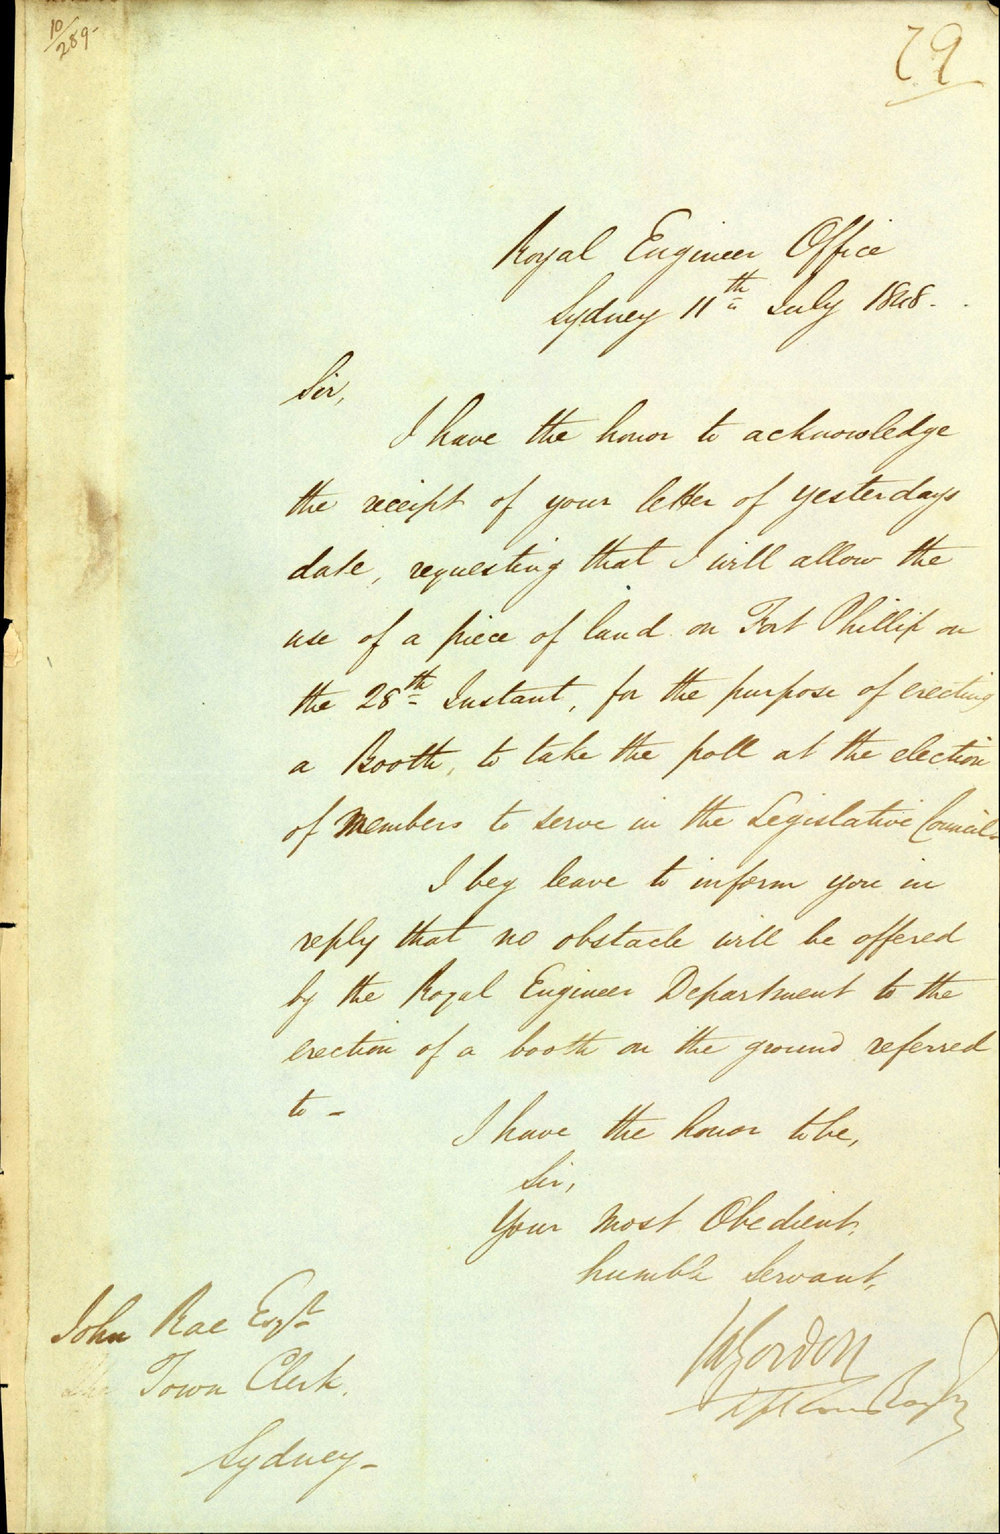 10/289-
79
Royal Engineer Office
Sydney 11th July 1848.
Sir,
I have the honor to acknowledge
the receipt of your letter of yesterdays
date, requesting that I will allow the
use of a piece of land on Fort Phillip on
the 28th Instant, for the purpose of erecting
a Booth, to take the poll at the election
of Members to serve in the Legislative Council.
I beg leave to inform you in
reply that no obstacle will be offered
by the Royal Engineer Department to the
erection of a booth on the ground referred
to -
I have the honor to be,
Sir,
Your Most Obedient,
humble Servant,
Gordon
John Rae Esqr
The Town Clerk.
Sydney-